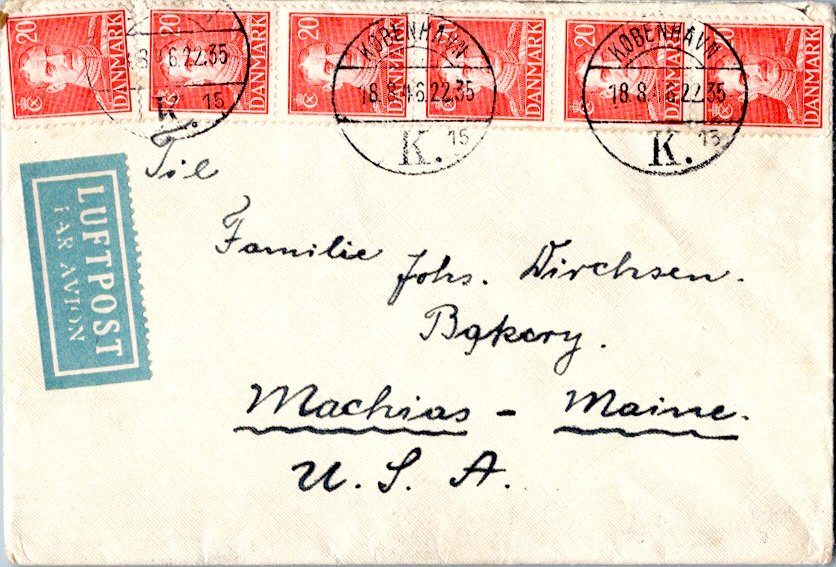 20 DANMARK
20 DANMARK
20 DANMARK
DANMARK
20 DANMARK
DANMARK
6.22.35
K. 15
KØBENHAVN
18.8.46.22.35
K. 15
KØBENHAVN
18.8.46.22.35
K. 15
LUFTPOST
PAR AVION
Til
Familie Johs. Dirchsen.
Bakery.
Machias - Maine.
U. S. A.